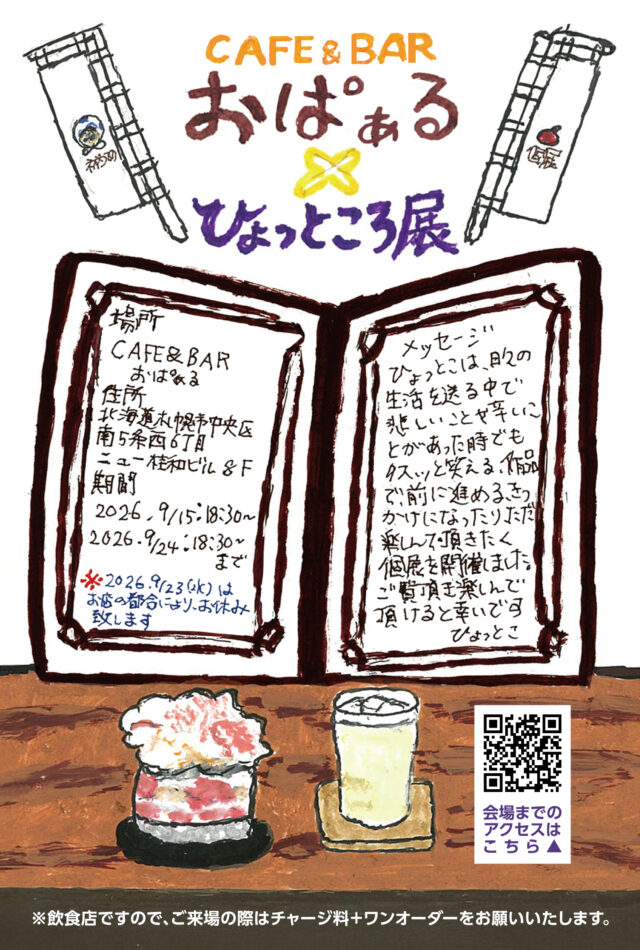 CAFE & BAR
おぱぁる
×
ひょっところ展
個展
場所
CAFE&BAR
おぱぁる
住所
北海道札幌市中央区
南5条西6丁目
ニュー桂和ビル8F
期間
2026.9/15:18:30~
2026.9/24:18:30~
まで
※2026.9/23(水)は
お店の都合により、お休み
致します
メッセージ
ひょっとこは、日々の
生活を送る中で
悲しいことや辛いこ
とがあった時でも
クスッと笑える、作品
で、前に進める、きっ
かけになったりただ
楽しんで頂きたく
個展を開催しました。
ご覧頂き楽しんで
頂けると幸いです
ひょっとこ
会場までの
アクセスは
こちら▲
※飲食店ですので、ご来場の際はチャージ料+ワンオーダーをお願いいたします。